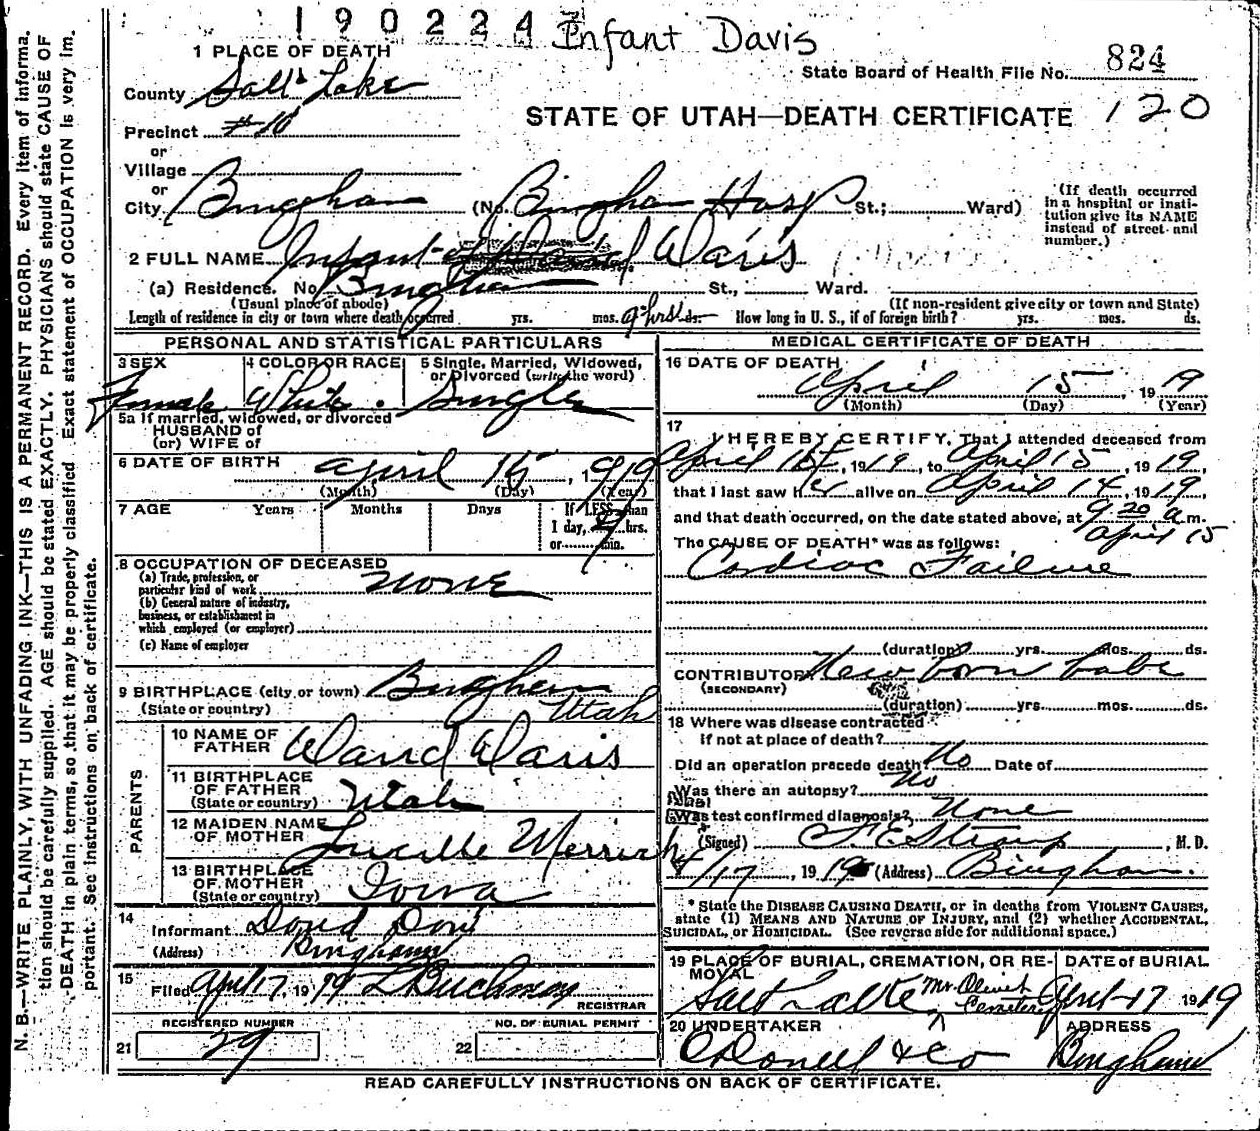 190224 Infant Davis
1 PLACE OF DEATH
State Board of Health File No. 824
County Salt Lake
STATE OF UTAH—DEATH CERTIFICATE 120
Precinct #10
or
Village
or
City Bingham (No. Bingham Hosp St.; Ward)
(If death occurred in a hospital or institution give its NAME instead of street and number.)
2 FULL NAME Infant of Davis
(a) Residence. No. Bingham St., Ward.
(Usual place of abode) (If non-resident give city or town and State)
Length of residence in city or town where death occurred yrs. mos. 9 hrs ds. How long in U. S., if of foreign birth? yrs. mos. ds.
PERSONAL AND STATISTICAL PARTICULARS
3 SEX 4 COLOR OR RACE 5 Single, Married, Widowed,
or Divorced (write the word)
Female White Single
5a If married, widowed, or divorced
HUSBAND of
(or) WIFE of
6 DATE OF BIRTH April 15, 1919
(Month) (Day) (Year)
7 AGE Years Months Days If LESS than
1 day, 9 hrs.
or min.
8 OCCUPATION OF DECEASED
(a) Trade, profession, or
particular kind of work none
(b) General nature of industry,
business, or establishment in
which employed (or employer)
(c) Name of employer
9 BIRTHPLACE (city or town) Bingham
(State or country) Utah
PARENTS
10 NAME OF
FATHER David Davis
11 BIRTHPLACE
OF FATHER
(State or country) Utah
12 MAIDEN NAME
OF MOTHER Lucille Merrich
13 BIRTHPLACE
OF MOTHER
(State or country) Iowa
14
Informant David Davis
(Address) Bingham
15
Filed April 17, 1919 Buchman
REGISTRAR
REGISTERED NUMBER NO. OF BURIAL PERMIT
21 29 22
MEDICAL CERTIFICATE OF DEATH
16 DATE OF DEATH
April 15, 1919
(Month) (Day) (Year)
17
I HEREBY CERTIFY, That I attended deceased from
April 15, 1919, to April 15, 1919,
that I last saw her alive on April 14, 1919,
and that death occurred, on the date stated above, at 9 20 a.m.
April 15
The CAUSE OF DEATH* was as follows:
Cardiac Failure
(duration) yrs. mos. ds.
CONTRIBUTORY New born babe
(SECONDARY)
(duration) yrs. mos. ds.
18 Where was disease contracted
if not at place of death?
Did an operation precede death No Date of
Was there an autopsy? No
Was test confirmed diagnosis? None
(Signed) F. E. Straup, M. D.
4/17, 1919 (Address) Bingham.
* State the DISEASE CAUSING DEATH, or in deaths from VIOLENT CAUSES,
state (1) MEANS AND NATURE OF INJURY, and (2) whether ACCIDENTAL,
SUICIDAL, or HOMICIDAL. (See reverse side for additional space.)
19 PLACE OF BURIAL, CREMATION, OR REMOVAL DATE of BURIAL
Salt Lake Mt. Olivet Cemetery April-17 1919
20 UNDERTAKER ADDRESS
O'Donnell & Co Bingham
READ CAREFULLY INSTRUCTIONS ON BACK OF CERTIFICATE.
N. B.—WRITE PLAINLY, WITH UNFADING INK—THIS IS A PERMANENT RECORD. Every item of information should be carefully supplied. AGE should be stated EXACTLY. PHYSICIANS should state CAUSE OF DEATH in plain terms, so that it may be properly classified. Exact statement of OCCUPATION is very important. See instructions on back of certificate.